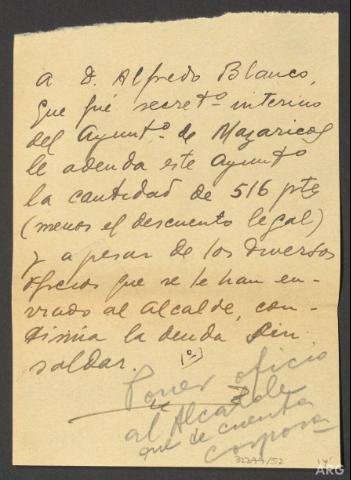 A D. Alfredo Blanco,
que fué secretº interino
del Ayuntº. de Mazaricos
le adeuda este Ayuntº
la cantidad de 516 pts
(menos el descuento legal)
y a pesar de los diversos
oficios que se le han en-
viado al Alcalde, con-
tinúa la deuda sin
saldar.
Poner oficio
al Alcalde
que de cuenta
32244/52
ARG